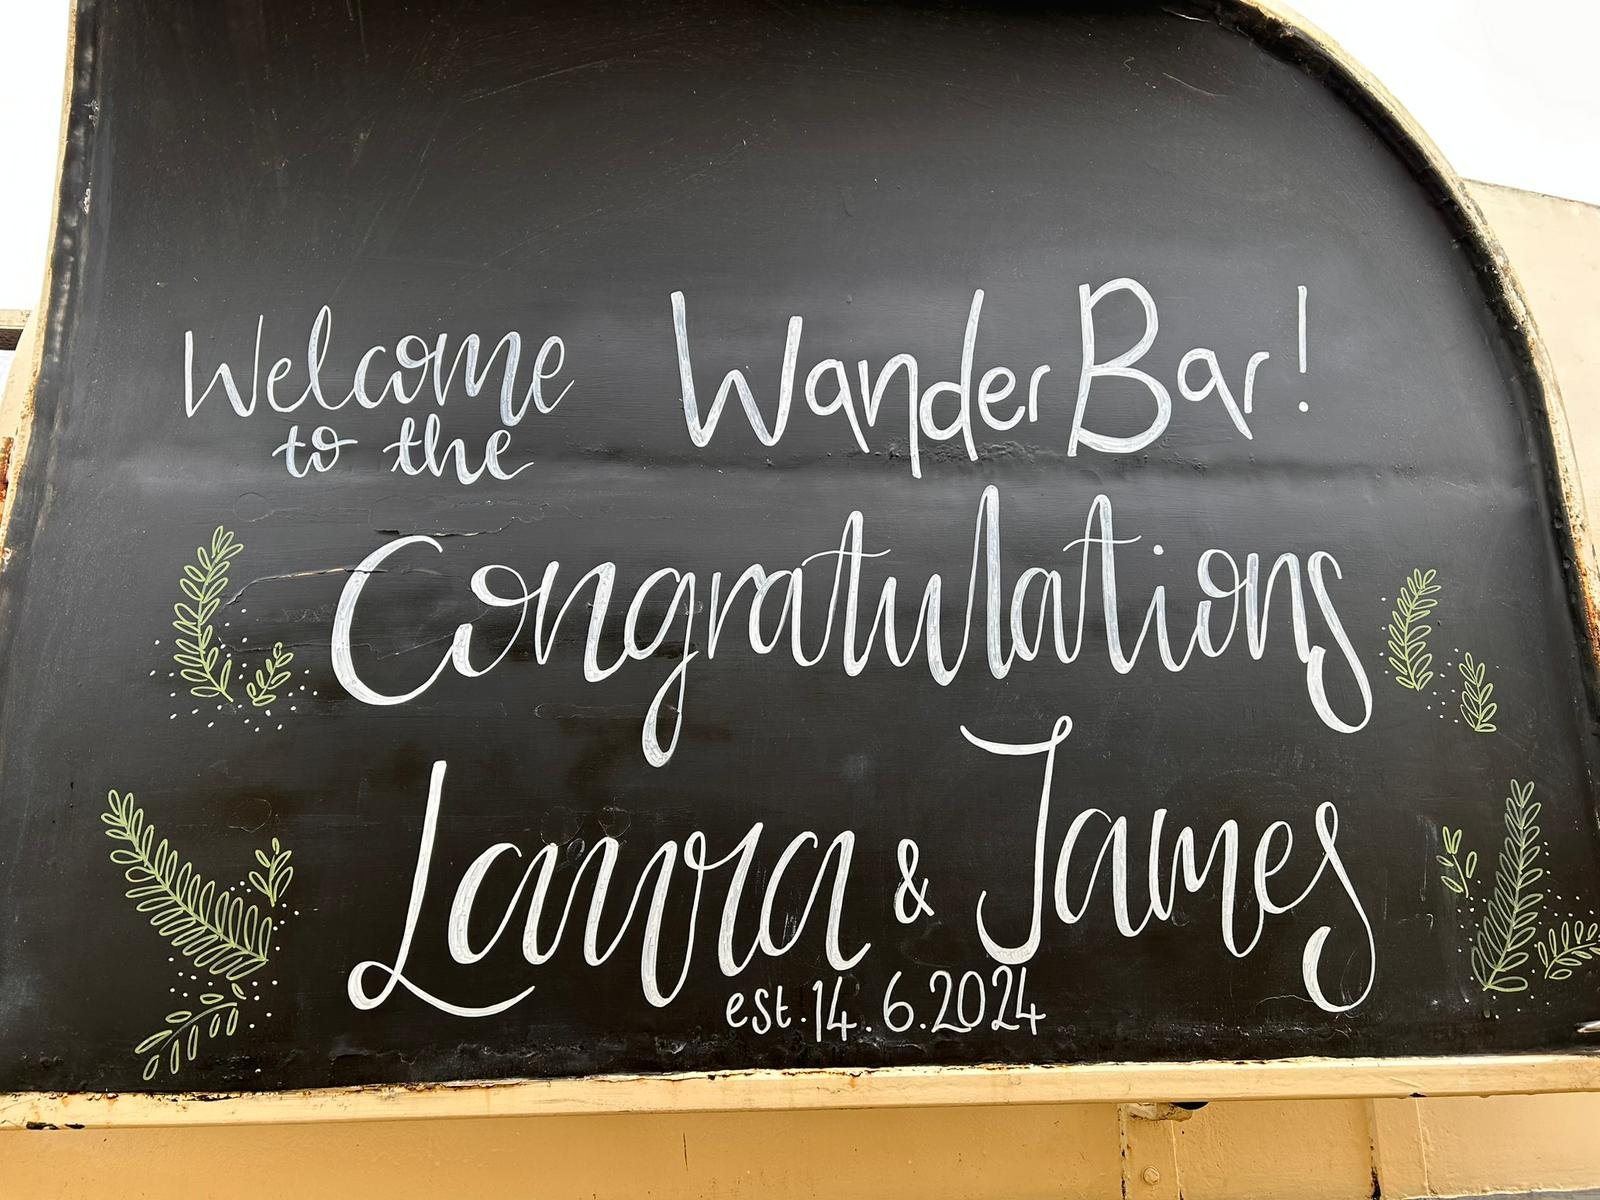 Welcome
to the
WanderBar!
Congratulations
Laura & James
est.14.6.2024